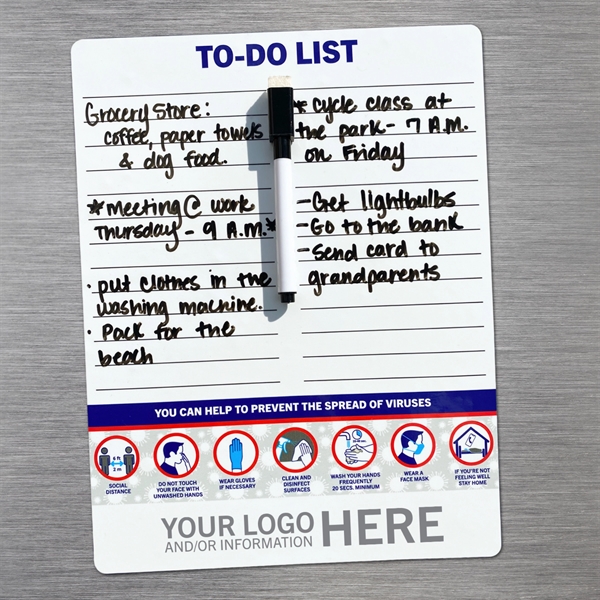 TO-DO LIST
Grocery Store:
coffee, paper towels
& dog food.
*meeting @ work
Thursday - 9 A.M.*
· put clothes in the
washing machine.
· Pack for the
beach
* cycle class at
the park - 7 A.M.
on Friday
- Get lightbulbs
- Go to the bank
- Send card to
grandparents
YOU CAN HELP TO PREVENT THE SPREAD OF VIRUSES
6 ft
2 m
SOCIAL
DISTANCE
DO NOT TOUCH
YOUR FACE WITH
UNWASHED HANDS
WEAR GLOVES
IF NECESSARY
CLEAN AND
DISINFECT
SURFACES
WASH YOUR HANDS
FREQUENTLY
20 SECS. MINIMUM
WEAR A
FACE MASK
IF YOU'RE NOT
FEELING WELL
STAY HOME
YOUR LOGO
AND/OR INFORMATION
HERE